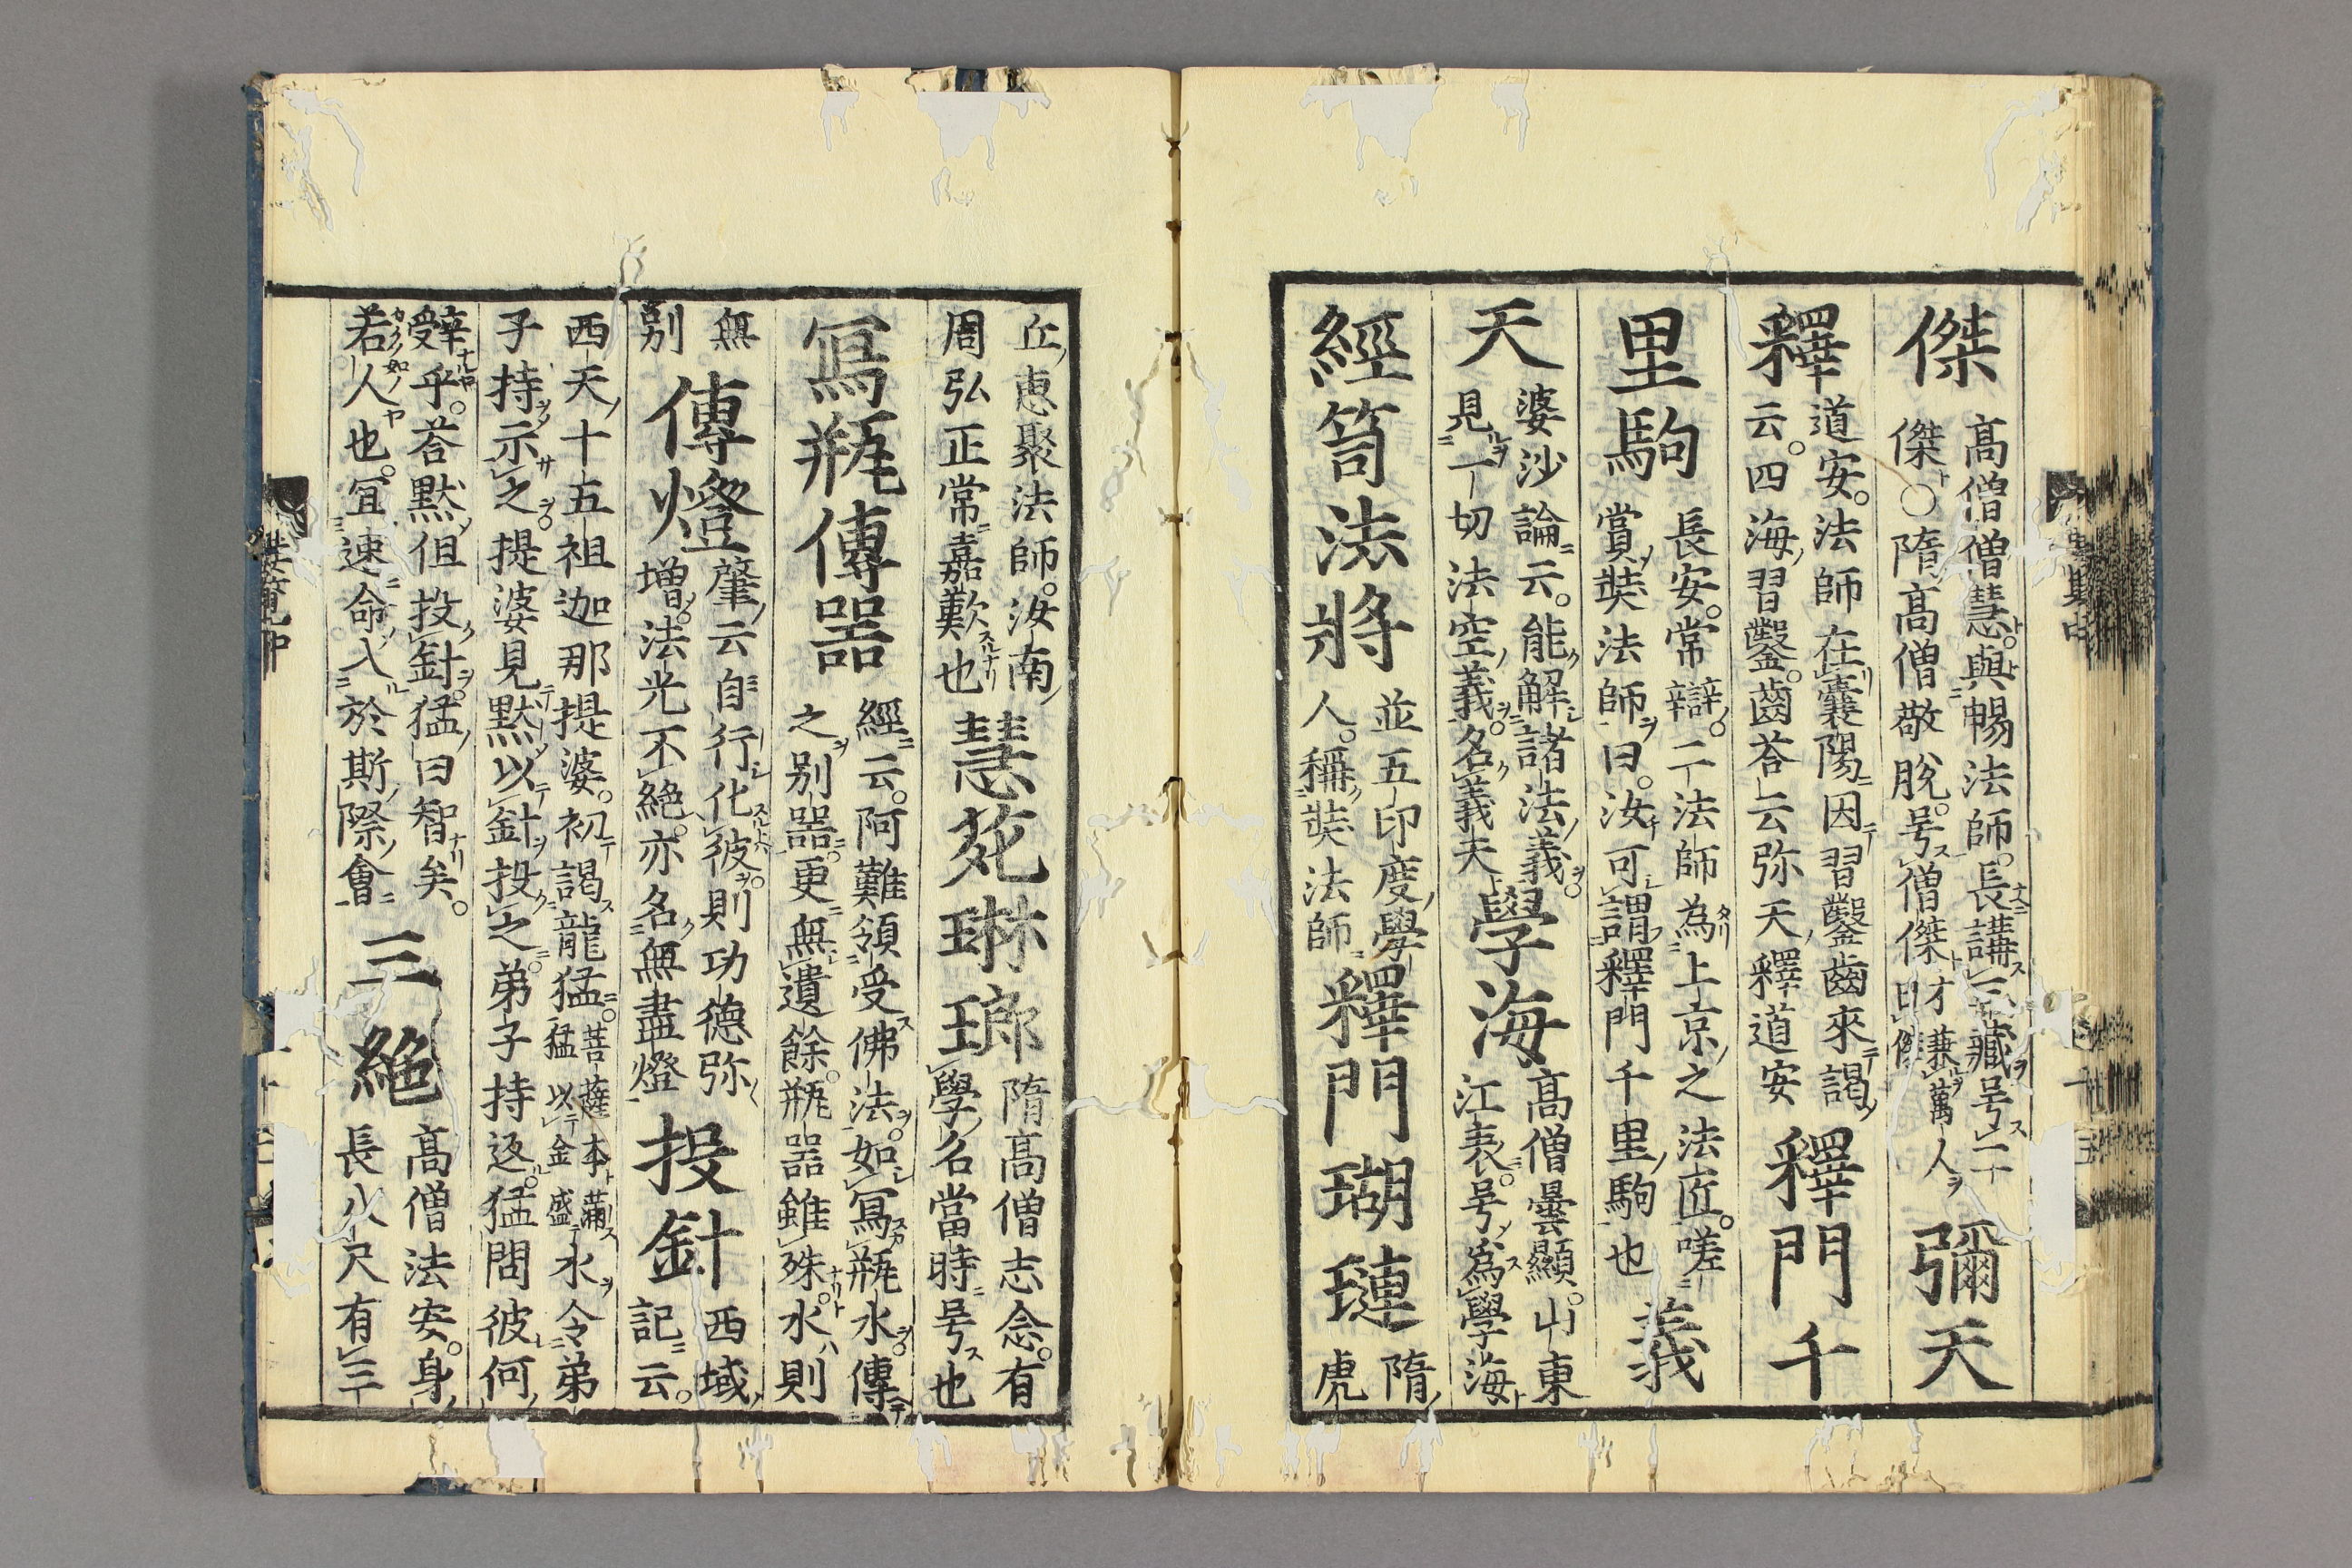 傑
高僧僧慧與暢法師長講三藏号二
傑〇隋高僧敬脫号僧傑才兼萬人
彌天
釋
道安法師在襄陽因習鑿齒來謁
云四海習鑿齒荅云弥天釋道安
釋門千
里駒
長安常辯二法師為上京之法匠嗟
賞奘法師曰汝可謂釋門千里駒也
義
天
婆沙論云能解諸法義
見一切法空義名義天
學海
高僧曇顯山東
江表号為學海
經笥法將
並五印度學
人稱奘法師
釋門瑚璉
隋
虎
丘惠聚法師汝南
周弘正常嘉歎也
慧苑琳瑯
隋高僧志念有
學名當時号也
寫瓶傳器
經云阿難領受佛法如寫瓶水傳
之別器更無遺餘瓶器雖殊水則
無
別
傳燈
肇云自行化彼則功德弥
增法光不絕亦名無盡燈
投針
西域
記云
西天十五祖迦那提婆初謁龍猛菩薩本滿
猛以金盛
水令弟
子持示之提婆見默以針投之弟子持返猛問彼何
辝乎荅默但投針猛曰智矣
若人也冝速命入於斯際會
三絕
高僧法安身
長八尺有三